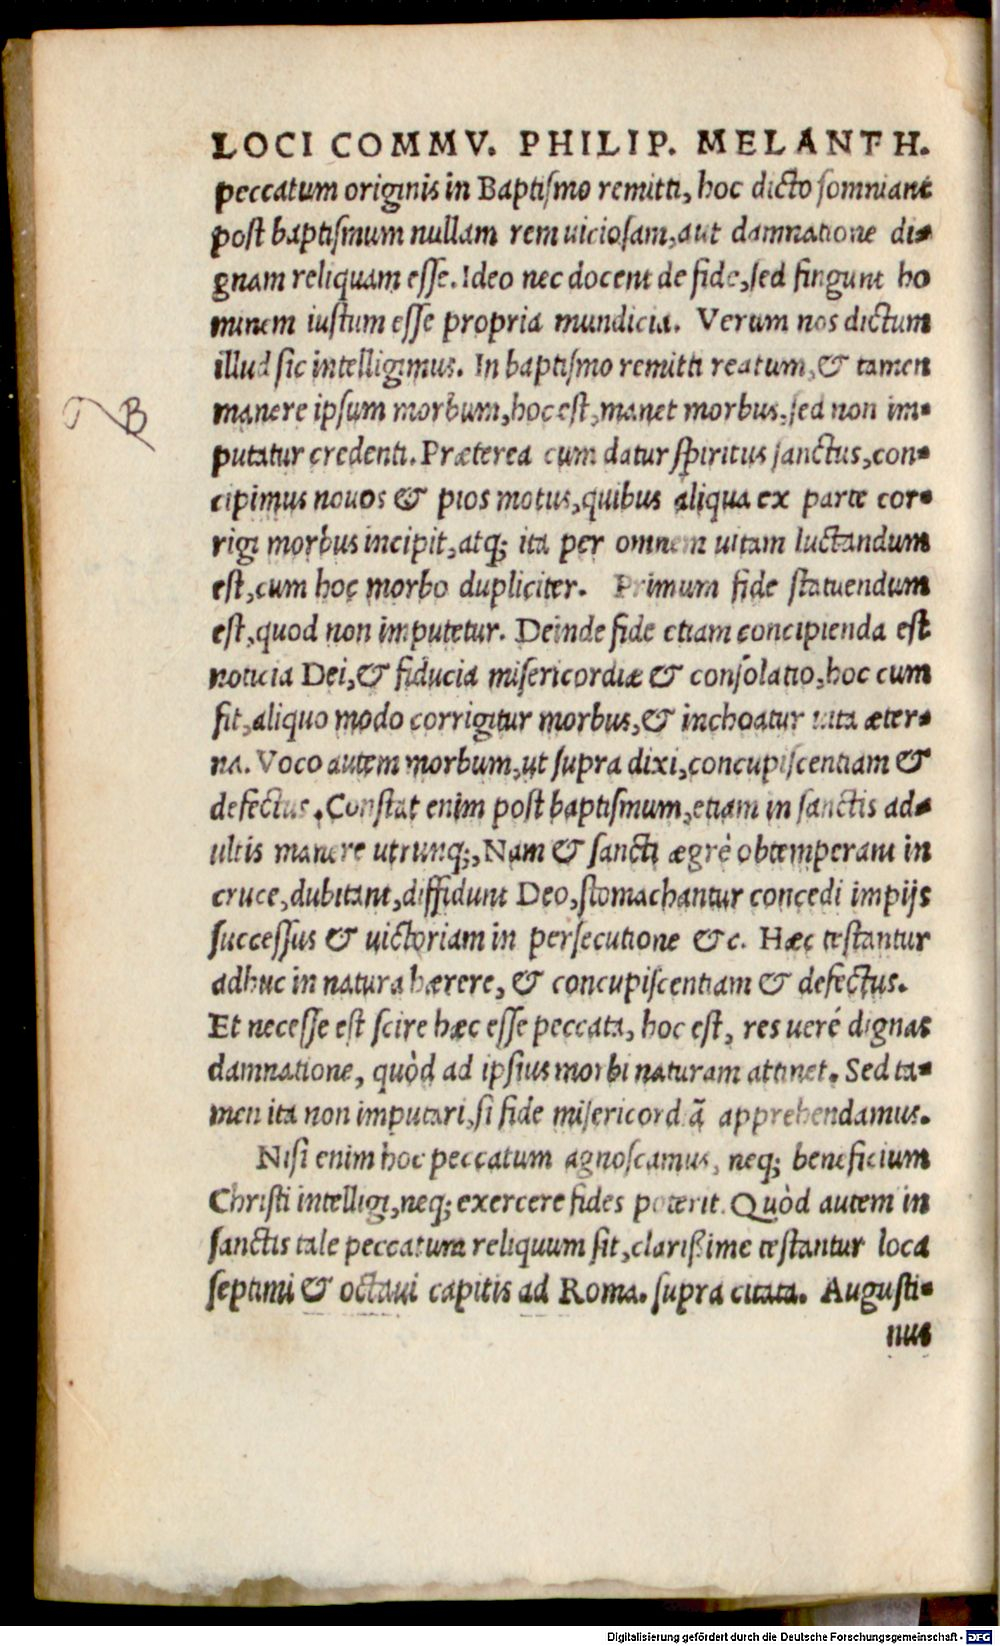 LOCI COMMV. PHILIP. MELANTH.
peccatum originis in Baptismo remitti, hoc dicto somniant
post baptismum nullam rem uiciosam, aut damnatione di-
gnam reliquam esse. Ideo nec docent de fide, sed fingunt ho
minem iustum esse propria mundicia. Verum nos dictum
illud sic intelligimus. In baptismo remitti reatum, & tamen
manere ipsum morbum, hoc est, manet morbus, sed non im-
putatur credenti. Præterea cum datur spiritus sanctus, con-
cipimus nouos & pios motus, quibus aliqua ex parte cor-
rigi morbus incipit, atq; ita per omnem uitam luctandum
est, cum hoc morbo dupliciter. Primum fide statuendum
est, quod non imputetur. Deinde fide etiam concipienda est
noticia Dei, & fiducia misericordiæ & consolatio, hoc cum
fit, aliquo modo corrigitur morbus, & inchoatur uita æter-
na. Voco autem morbum, ut supra dixi, concupiscentiam &
defectus. Constat enim post baptismum, etiam in sanctis ad-
ultis manere utrunq;, Nam & sancti ægrè obtemperant in
cruce, dubitant, diffidunt Deo, stomachantur concedi impijs
successus & uictoriam in persecutione &c. Hæc testantur
adhuc in natura hærere, & concupiscentiam & defectus.
Et necesse est scire hæc esse peccata, hoc est, res ueré dignas
damnatione, quòd ad ipsius morbi naturam attinet. Sed ta-
men ita non imputari, si fide misericordiã apprehendamus.
Nisi enim hoc peccatum agnoscamus, neq; beneficium
Christi intelligi, neq; exercere fides poterit. Quòd autem in
sanctis tale peccatum reliquum sit, clarißime testantur loca
septimi & octaui capitis ad Roma. supra citata. Augusti-
nus
B
Digitalisierung gefördert durch die Deutsche Forschungsgemeinschaft - DFG